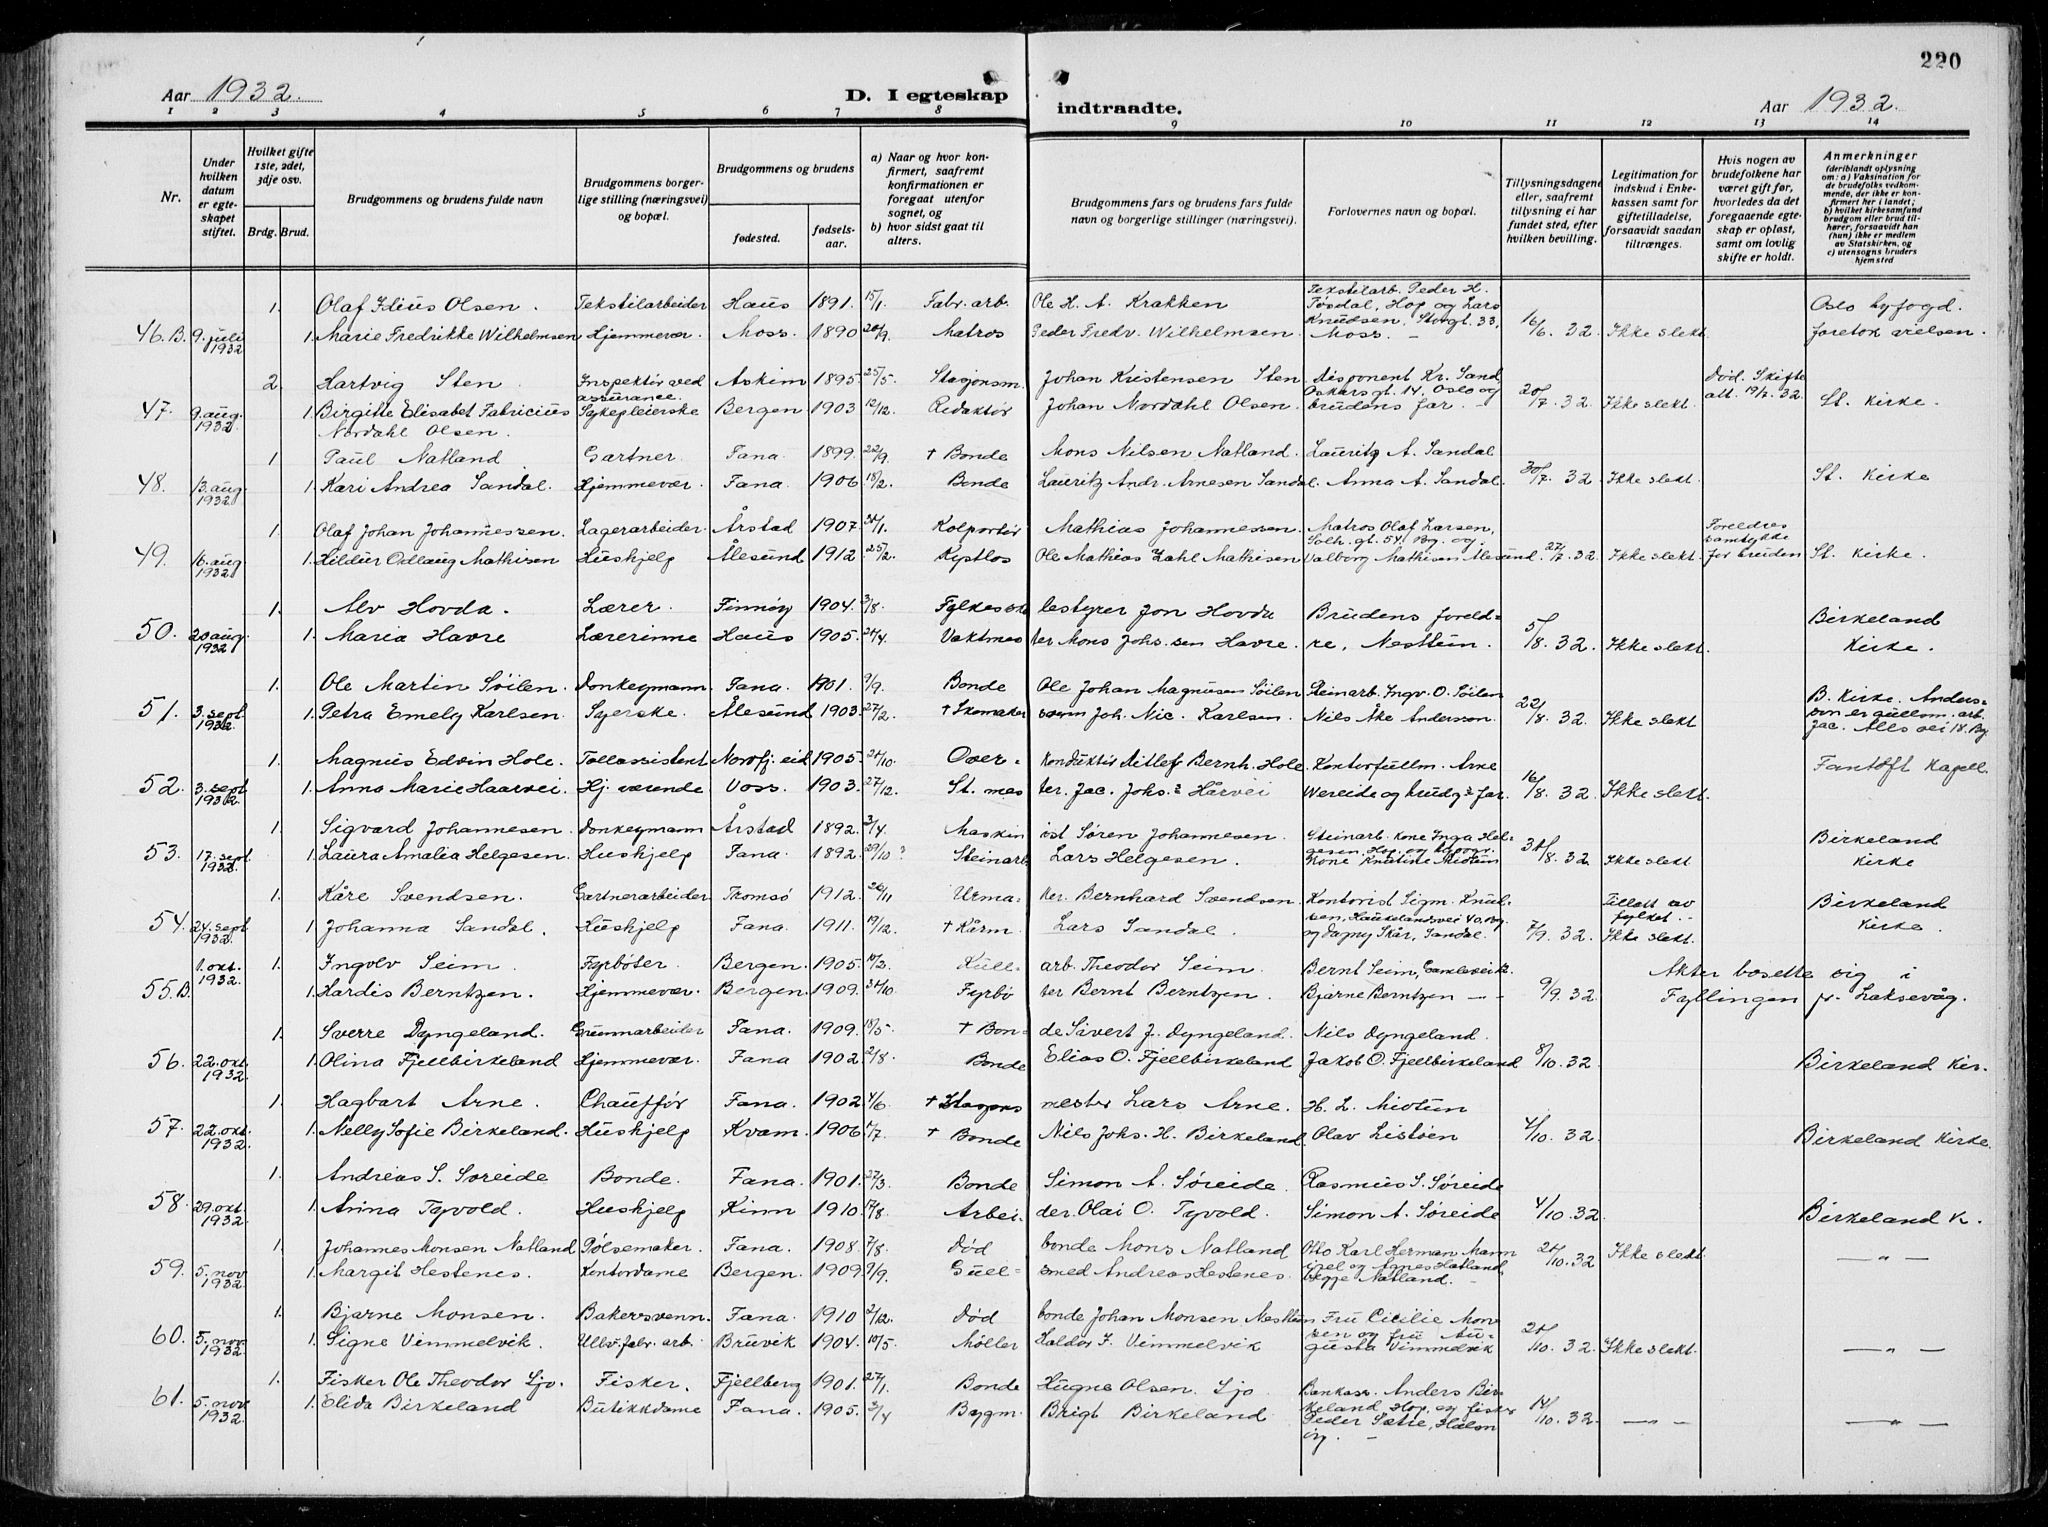 220
Aar 1932. D. I egteskap indtraadte. Aar 1932.
1 2 3 4 5 6 7 8 9 10 11 12 13 14
Nr.
Under hvilken datum er egteskapet stiftet.
Hvilket gifte 1ste, 2det, 3dje osv.
Brdg. Brud.
Brudgommens og brudens fulde navn
Brudgommens borgerlige stilling (næringsvei) og bopæl.
Brudgommens og brudens
fødested. fødselsaar.
a) Naar og hvor konfirmert, saafremt konfirmationen er foregaat utenfor sognet, og
b) hvor sidst gaat til alters.
Brudgommens fars og brudens fars fulde navn og borgerlige stillinger (næringsvei).
Forlovernes navn og bopæl.
Tillysningsdagene eller, saafremt tillysning ei har fundet sted, efter hvilken bevilling.
Legitimation for indskud i Enkekassen samt for giftetilladelse, forsaavidt saadan tiltrænges.
Hvis nogen av brudefolkene har været gift før, hvorledes da det foregaaende egteskap er opløst, samt om lovlig skifte er holdt.
Anmerkninger (deriblandt oplysning om: a) Vaksination for de brudefolks vedkommende, der ikke er konfirmert her i landet; b) hvilket kirkesamfund brudgom eller brud tilhører, forsaavidt han (hun) ikke er medlem av Statskirken, og c) utensogns bruders hjemsted
1. Olaf Idius Olsen. Tekstilarbeider Haus 1891. 15/1 Fabr. arb. Ole H. A. Krakken Tekstilarb. Peder H. Tøsdal, Hop og Lars Oslo byfogd.
46.B. 9. juli 1932 1. Marie Fredrikke Wilhelmsen Hjemmevær. Moss. 1890 20/9 Matros Peder Fredv. Wilhelmsen Knudsen, Storgt. 33, Moss. – 16/6. 32 Ikke slekt foretok vielsen.
2. Hartvig Sten Inspektør ved assurance. Askim 1895. 25/5. Stasjonsm. Johan Kristensen Sten disponent Kr. Sand, Oskarsgt. 14, Oslo og Død. Skifte
47. 9. aug. 1932 1. Birgitte Elisabet Fabricius Nordahl Olsen. Sykepleierske Bergen 1903 12/12. Redaktør Johan Nordahl Olsen. brudens far. – 20/7. 32. Ikke slekt. att. 19/7. 32. St. Kirke.
1 Paul Natland Gartner. Fana. 1899. 22/9. † Bonde Mons Nilsen Natland. Lauritz A. Sandal
48. 13. aug. 1932 1. Kari Andrea Sandal. Hjemmevær. Fana. 1906 15/2. Bonde Lauritz Andr. Arnesen Sandal. Anna A. Sandal. 30/7. 32. Ikke slekt. St. Kirke
1. Olaf Johan Johannessen. Lagerarbeider. Årstad 1907. /1. Kolportør Mathias Johannessen. Matros Olaf Larsen, Solh. gt. 54. Bg. og Foreldres samtykke
49. 16. aug 1932 1. Hildur Odlaug Mathisen Hushjelp Ålesund 1912. 25/2. Kystlos Ole Mathias Zahl Mathisen Valborg Mathisen Ålesund. 27/7. 32. Ikke slekt. for bruden St. Kirke.
1. Alv Hovda. Lærer. Finnøy 1904. 3/8. Fylkessko lestyrer Jon Hovda Brudens foreld- Birkeland
50. 20 aug. 1932 1. Maria Havre Lærerinne Haus 1905. 24/4. Vaktmes ter Mons Johs.sen Havre. re, Nesttun. 5/8. 32. Ikke slekt Kirke.
1. Ole Martin Søilen. Donkeymann. Fana. 1901. 9/9. Bonde Ole Johan Magnusen Søilen Steinarb. Ingv. O. Søilen B. Kirke. Anders-
51. 3. sept. 1932 1. Petra Emely Karlsen. Syerske. Ålesund 1903. 27/2. † Skomaker svenn Joh. Nic. Karlsen. Nils Åke Andersson. 22/8. 32. Ikke slekt son er gullsm. arb. Jac. Alls vei 18. Bg.
1. Magnus Edvin Hole. Tollassistent Nordfj.eid 1905. 24/10. Over- konduktør Ditlef Bernh. Hole. Kontorfullm. Arne Fantoft Kapell.
52. 3. sept. 1932. 1. Anna Marie Haarvei. Hj. værende Voss. 1903. 27/12. St. mes ter. Jac. Johs.s Hårvei Wereide og brudg.s far. 16/8. 32. Ikke slekt.
1. Sigvard Johannesen. Donkeymann Årstad 1892. 3/4. Maskin ist Søren Johannesen. Steinarb. kone Inga Hel- gesen, Hop og Birkeland
53. 17. sept. 1932. 1. Laura Amalia Helgesen. Hushjelp Fana. 1892. 29/10 ? Steinarb. Lars Helgesen. Kone Kristine Midtun 31/8. 32 Ikke slekt Kirke
1. Kåre Svendsen. Gartnerarbeider Tromsø 1912. 26/11 Urma- ker. Bernhard Svendsen. Kontorist Sigm. Knud- sen, Haukelandsvei 40, Bg. Tillatt av fylket. Birkeland
54. 24. sept. 1932. 1 Johanna Sandal. Hushjelp Fana. 1911. 19/12. † Kårm. Lars Sandal. og Dagny Skår, Sandal. 7/9. 32. Ikke slekt. Kirke.
1. okt. 1932. 1. Ingolv Seim. Fyrbøter. Bergen. 1905. 10/3. Kull- arb. Theodor Seim. Bernt Seim, Akter bosette sig i
55B. 1. Hardis Berntzen. Hjemmevær. Bergen. 1909. 31/10 Fyrbø ter Bernt Berntzen. Bjarne Berntzen – – 9/9. 32. Fyllingen pr. Laksevåg.
1. Sverre Dyngeland. Grunnarbeider Fana. 1909. 18/5. † Bon- de Sivert J. Dyngeland. Nils Dyngeland.
56. 22. okt. 1932. 1. Olina Fjellbirkeland Hjemmevær. Fana 1902. 2/8. Bonde Elias O. Fjellbirkeland Jakob O. Fjellbirkeland 8/10. 32. Birkeland Kir.
1. Hagbart Arne. Chauffør Fana. 1902. 4/6 † Stasjons mester Lars Arne. H. L. Midtun
57. 22. okt. 1932 1. Nelly Sofie Birkeland. Hushjelp Kvam. 1906 /7. † Bonde Nils Johs. H. Birkeland. Olav Listøen 4/10. 32. Birkeland Kirke.
1. Andreas S. Søreide Bonde. Fana. 1901. 27/3. Bonde Simon A. Søreide. Rasmus S. Søreide
58. 29. okt. 1932. 1. Anna Tyvold. Hushjelp Kinn 1910. 17/8. Arbei- der. Olai O. Tyvold. Simon A. Søreide 4/10. 32. Birkeland K.
1. Johannes Monsen Natland Pølsemaker. Fana. 1908. 7/8. Død bonde Mons Natland Otto Karl Herman Mann
59. 5. nov 1932. 1. Margit Hestenes. Kontordame Bergen. 1909. 9/9. Gull- smed Andreas Hestenes. og Agnes Natland, begge Natland. – 20/10. 32. Ikke slekt. – " –
1. Bjarne Monsen. Bakersvenn. Fana. 1910 2/12. Død bonde Johan Monsen Nesttun Fru Cicilie Mon-
60. 5. nov. 1932. 1. Signe Vimmelvik. Ullv. fabr. arb. Bruvik 1904. 10/5. Møller Haldor J. Vimmelvik sen og fru Au- gusta Vimmelvik 20/10. 32. Ikke slekt. – " –
1. Fisker Ole Theodor Sjo. Fisker. Fjellberg 1901. 27/1. Bonde Hugne Olsen Sjo Bankass. Anders Bir-
61. 5. nov. 1932. 1. Elida Birkeland Butikkdame Fana. 1905. 3/4 Bygm. Brigt Birkeland keland, Hop, og fisker Peder Sætre, Halsn- øy. – 14/10. 32. – " – – " –